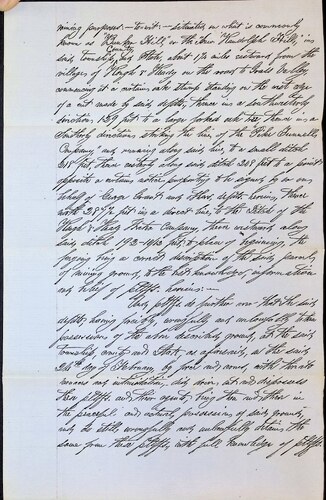 mining purposes — to wit: — situated in what is commonly
known as "Kanaka Hill," in the
County
said township and State, about 1½ miles eastward from the
villages of Hough & Hardy on the road to
commencing at a notice on the stump standing on the west edge
of a cut made by said defts, thence in a southwesterly
direction 139 feet to a large forked oak tree, thence in a
Southerly direction, striking the line of the Tunnel
Company, and running along said line, to a small ditch
318 feet, thence westerly along said ditch 208 feet to a point
opposite a notice purporting to be signed by or on
behalf of George and others, defts. herein, thence
north 287½ feet in a direct line, to the ditch of the
Hough & Water Company, thence eastwardly along
said ditch feet, to place of beginning, the
foregoing being a correct description of the said parcels
of mining ground, to the best knowledge, information
and belief of pltffs. herein: —
And pltffs do further aver that the said
defts, having forcibly, wrongfully and unlawfully taken
possession of the above described ground, at the said
township, county and State as aforesaid, on the said
24th day of February by force and arms, with threats
menaces and intimidation, did drive out and dispossess
these pltffs. and their agents,
the peaceful and actual possession of said ground,
and do still, wrongfully and unlawfully detain the
same from these pltffs, with full knowledge of pltffs